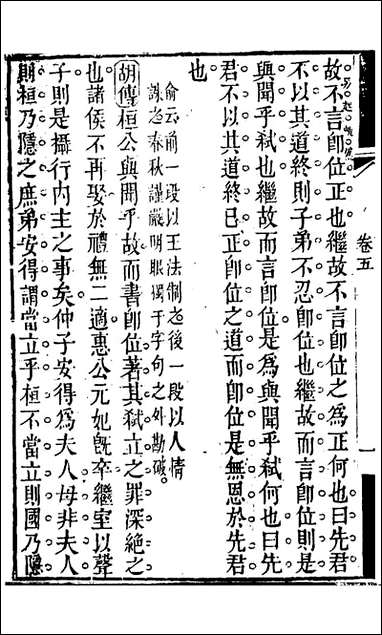 故不言卽位正也繼故不言卽位之爲正何也曰先君
不以其道終則子弟不忍卽位也繼故而言卽位則是
與聞乎弒也繼故而言卽位是爲與聞乎弒何也曰先
君不以其道終已正卽位之道而卽位是無恩於先君
也
俞云前一段以王法制之後一段以人情
誅之春秋謹嚴明眼獨于字句之外勘破。
胡傳桓公與聞乎故而書卽位著其弒立之罪深絕之
也諸侯不再娶於禮無二適惠公元妃旣卒繼室以聲
子則是攝行內主之事矣仲子安得爲夫人母非夫人
則桓乃隱之庶弟安得謂當立乎桓不當立則國乃隱
卷五
一